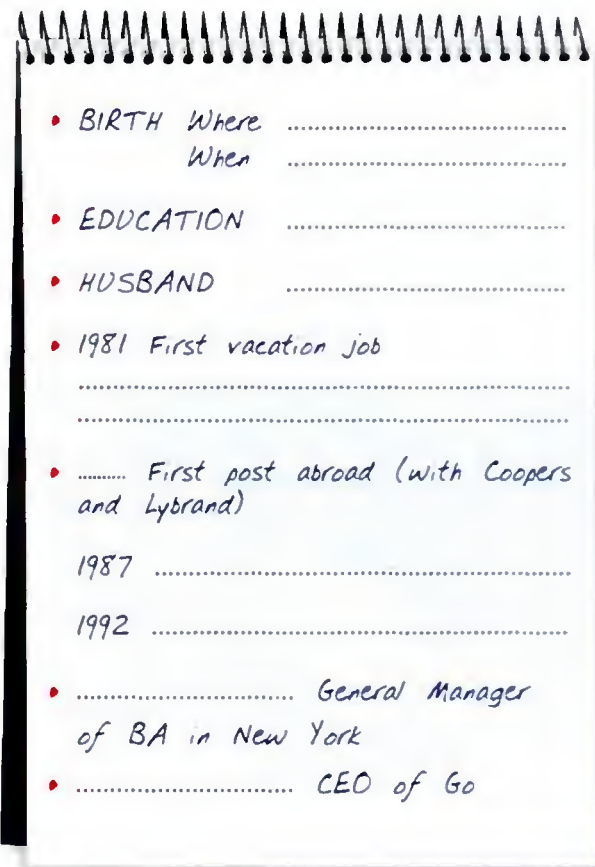 • BIRTH Where ........................................
When ........................................
• EDUCATION ........................................
• HUSBAND ........................................
• 1981 First vacation job
......................................................................
......................................................................
• .......... First post abroad (with Coopers
and Lybrand)
1987 ............................................................
1992 ............................................................
• ............................... General Manager
of BA in New York
• ............................... CEO of Go